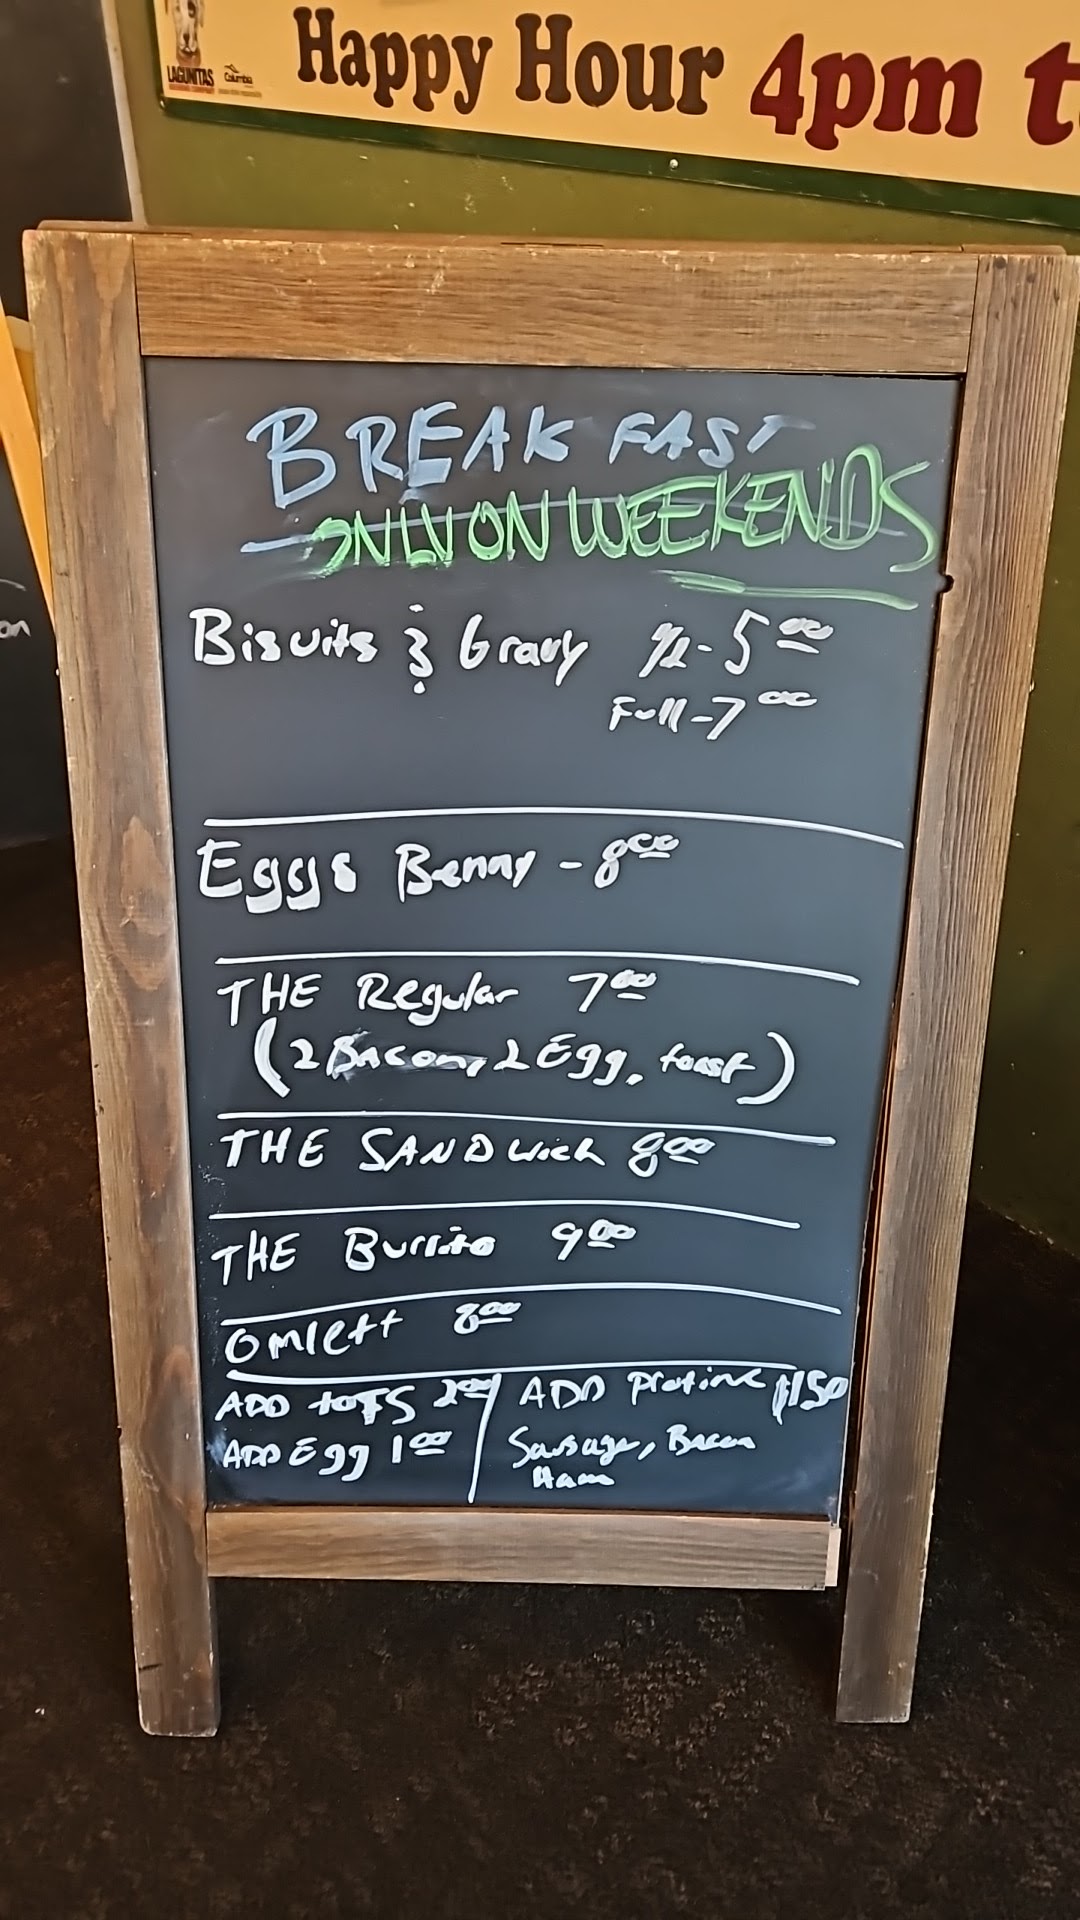 LAGUNITAS
Columbia
Happy Hour 4pm t
on
BREAKFAST
ONLY ON WEEKENDS
Biscuits & Gravy 1/2 - 5.00
Full - 7.00
Eggs Benny - 8.00
THE Regular 7.00
(2 Bacon, 2 Egg, toast)
THE SANDwich 8.00
THE Burrito 9.00
OMlett 8.00
ADD totS 2.00
ADD Egg 1.00
ADD protine $1.50
Sausage, Bacon
Ham